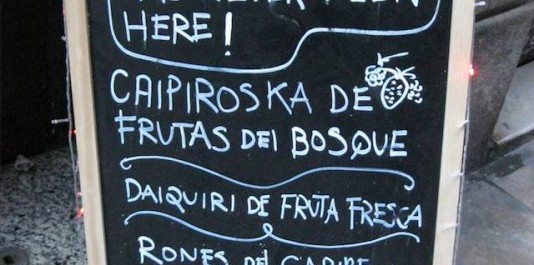 HERE!
CAIPIROSKA DE
FRUTAS DEl BOSQUE
DAIQUIRI DE FRUTA FRESCA
RONES DEl CARIBE